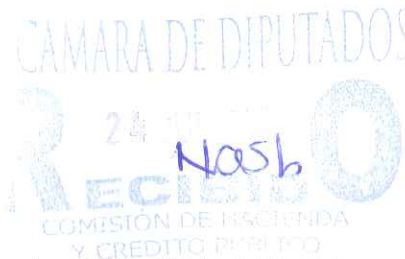 CAMARA DE DIPUTADOS
24
RECIBIDO
COMISIÓN DE HACIENDA
Y CREDITO PUBLICO